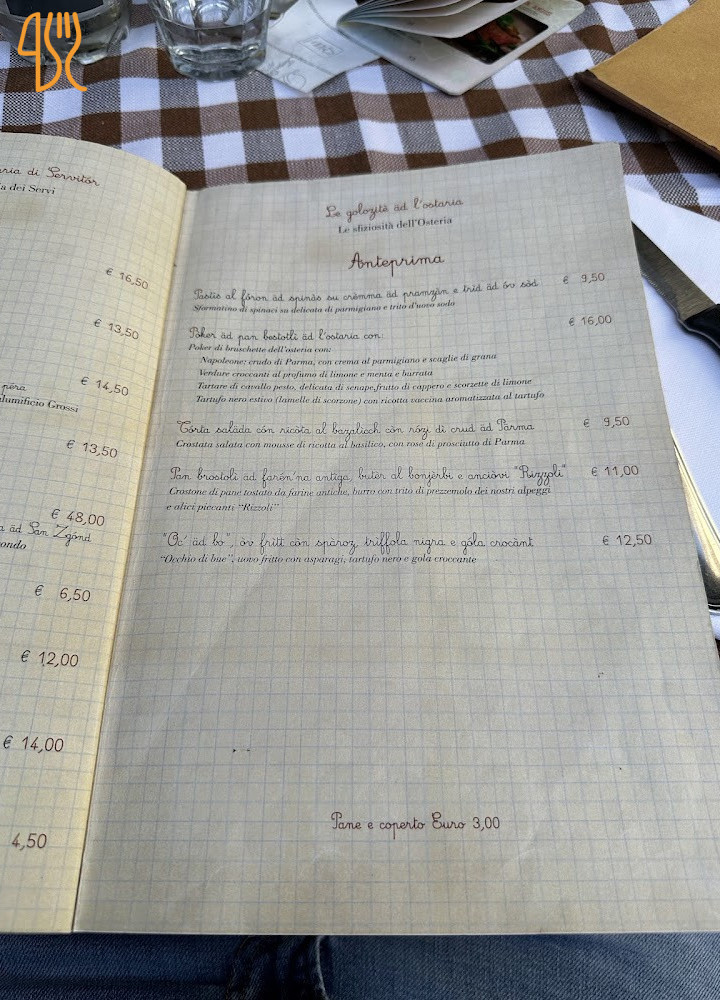 di Servitór
dei Servi
€ 16,50
€ 13,50
€ 14,50
péra
Salumificio Grossi
€ 13,50
€ 48,00
äd San Zgónd
€ 6,50
€ 12,00
€ 14,00
4,50
Le golozité äd l'ostaria
Le sfiziosità dell'Osteria
Anteprima
Pastis al fóron äd spinàs su crèmma äd pramzàn e trid äd óv sòd € 9,50
Sformatino di spinaci su delicata di parmigiano e trito d'uovo sodo
Póker äd pan bestotli äd l'ostaria con: € 16,00
Poker di bruschette dell'osteria con:
Napoleone: crudo di Parma, con crema al parmigiano e scaglie di grana
Verdure croccanti al profumo di limone e menta e burrata
Tartare di cavallo pesto, delicata di senape,frutto di cappero e scorzette di limone
Tartufo nero estivo (lamelle di scorzone) con ricotta vaccina aromatizzata al tartufo
Tórta saläda cón ricòta al bazalicch cón rózi di crud äd Parma € 9,50
Crostata salata con mousse di ricotta al basilico, con rose di prosciutto di Parma
Pan brostolì äd farén'na antiga, butér al bonjèrbi e anciòvi "Rizzoli" € 11,00
Crostone di pane tostato da farine antiche, burro con trito di prezzemolo dei nostri alpeggi
e alici piccanti "Rizzoli"
"Oć' äd bo", óv fritt cón spàroz, triffola nigra e góla crocànt € 12,50
"Occhio di bue", uovo fritto con asparagi, tartufo nero e gola croccante
Pane e coperto Euro 3,00